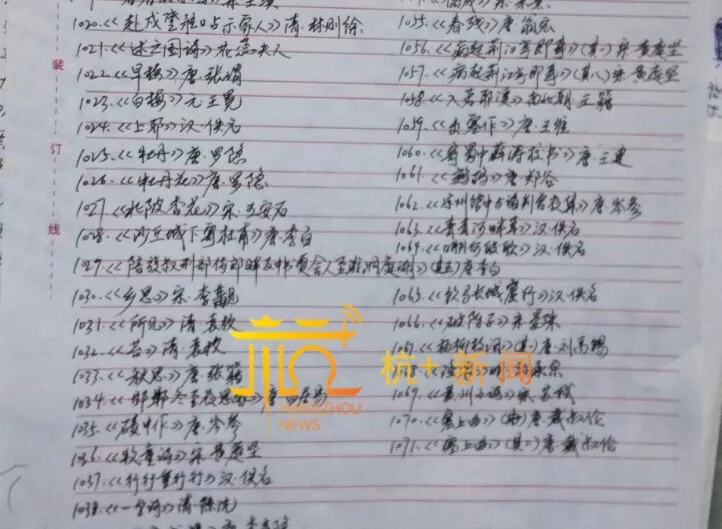 1020.《赴戍登程口占示家人》清·林则徐
1021.《述亡国诗》花蕊夫人
1022.《早梅》唐·张谓
1023.《白梅》元·王冕
1024.《上邪》汉·佚名
1025.《牡丹》唐·罗隐
1026.《牡丹花》唐·罗隐
1027.《北陂杏花》宋·王安石
1028.《沙丘城下寄杜甫》唐·李白
1029.《陪族叔刑部侍郎晔及中书贾舍人至游洞庭湖》(其五)唐·李白
1030.《乡思》宋·李觏
1031.《所见》清·袁枚
1032.《苔》清·袁枚
1033.《秋思》唐·张籍
1034.《邯郸冬至夜思家》唐·白居易
1035.《碛中作》唐·岑参
1036.《牧童诗》宋·黄庭坚
1037.《行行重行行》汉·佚名
1038.《一字诗》清·陈沆
1055.《春残》宋
1056.《病起荆江亭即事》(其一)宋·黄庭坚
1057.《病起荆江亭即事》(其八)宋·黄庭坚
1058.《入若耶溪》南北朝·王籍
1059.《出塞作》唐·王维
1060.《寄蜀中薛涛校书》唐·王建
1061.《鹧鸪》唐·郑谷
1062.《凉州馆中与诸判官夜集》唐·岑参
1063.《青青河畔草》汉·佚名
1064.汉·佚名
1065.《饮马长城窟行》汉·佚名
1066.《破阵子》宋·晏殊
唐·刘禹锡
1069.宋·苏轼
1070.《塞上曲》唐·戴叔伦
1071.《塞上曲》(其二)唐·戴叔伦
装
订
线
杭+新闻
HANGZHOU
NEWS